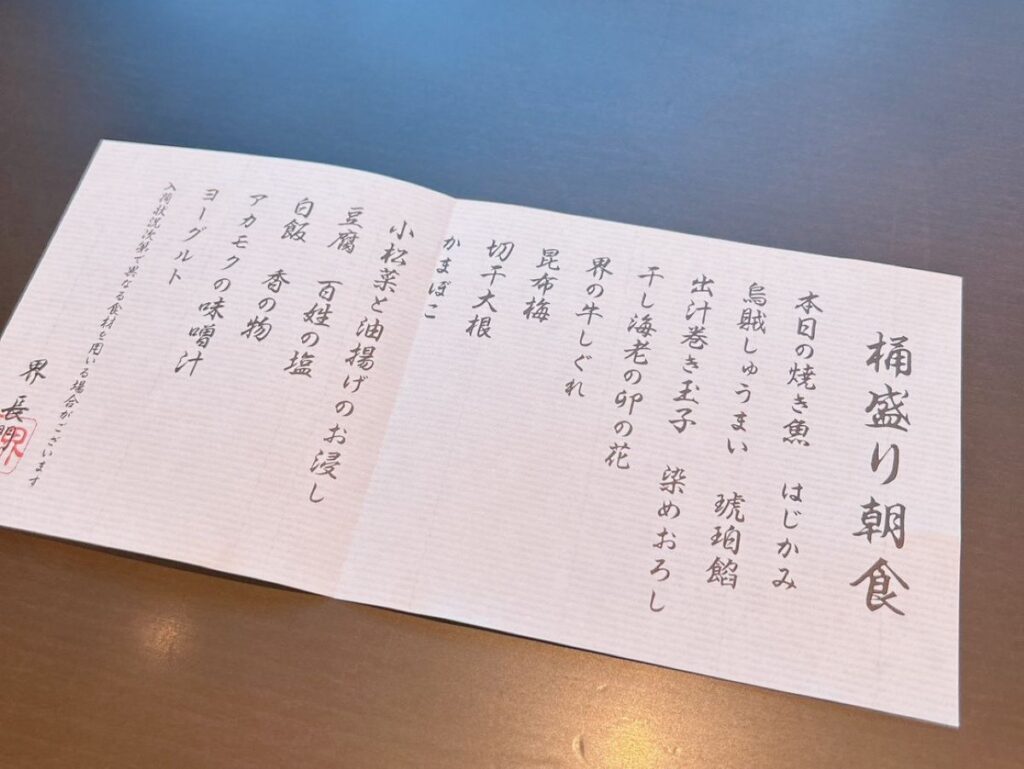 桶盛り朝食
本日の焼き魚　はじかみ
烏賊しゅうまい　琥珀餡
出汁巻き玉子　染めおろし
干し海老の卯の花
界の牛しぐれ
昆布梅
切干大根
かまぼこ
小松菜と油揚げのお浸し
豆腐　百姓の塩
白飯　香の物
アカモクの味噌汁
ヨーグルト
入荷状況次第で異なる食材を用いる場合がございます
界　長門
界